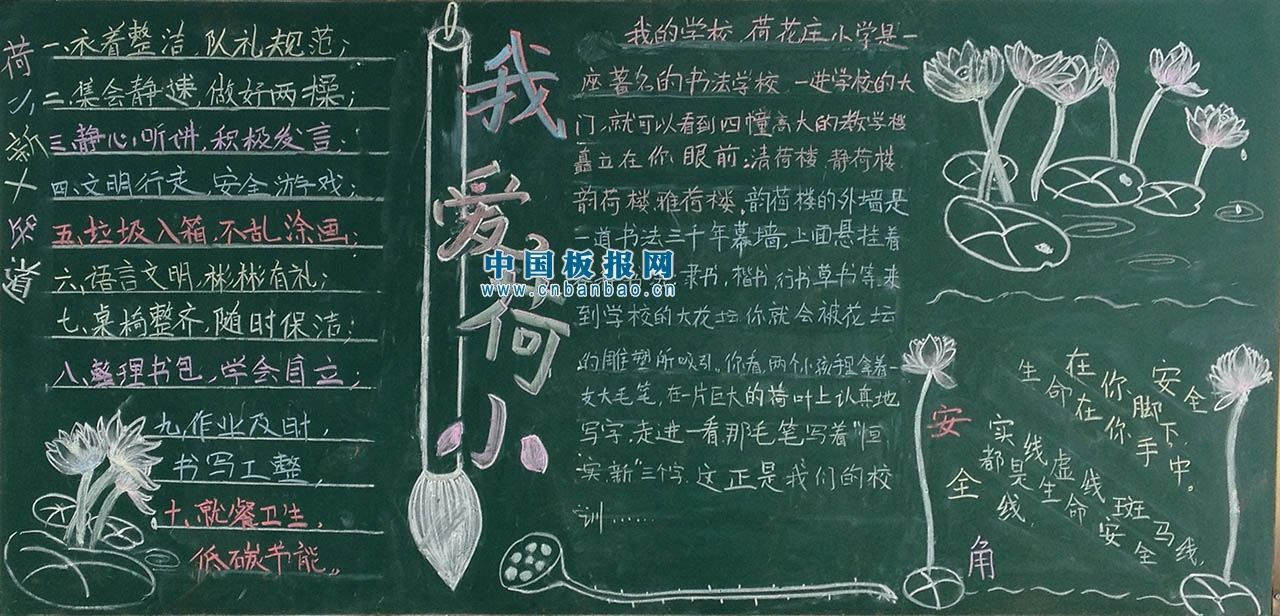 荷小新十必遵
一、衣着整洁,队礼规范;
二、集会静速,做好两操;
三、静心听讲,积极发言;
四、文明行走,安全游戏;
五、垃圾入箱,不乱涂画;
六、语言文明,彬彬有礼;
七、桌椅整齐,随时保洁;
八、整理书包,学会自立;
九、作业及时,
书写工整,
十、就餐卫生,
低碳节能。
我爱荷小
中国板报网
www.cnbanbao.cn
我的学校,荷花庄小学是一
座著名的书法学校,一进学校的大
门,就可以看到四幢高大的教学楼
矗立在你眼前:清荷楼,静荷楼,
韵荷楼,雅荷楼。韵荷楼的外墙是
一道书法三千年幕墙,上面悬挂着
隶书,楷书,行书草书等,来
到学校的大花坛,你就会被花坛
的雕塑所吸引。你看,两个小孩程拿着一
支大毛笔,在一片巨大的荷叶上认真地
写字,走进一看,那毛笔写着“恒
实新”三个字,这正是我们的校
训……
安全角
安全在你脚下,
生命在你手中。
实线虚线斑马线,
都是生命安全线。